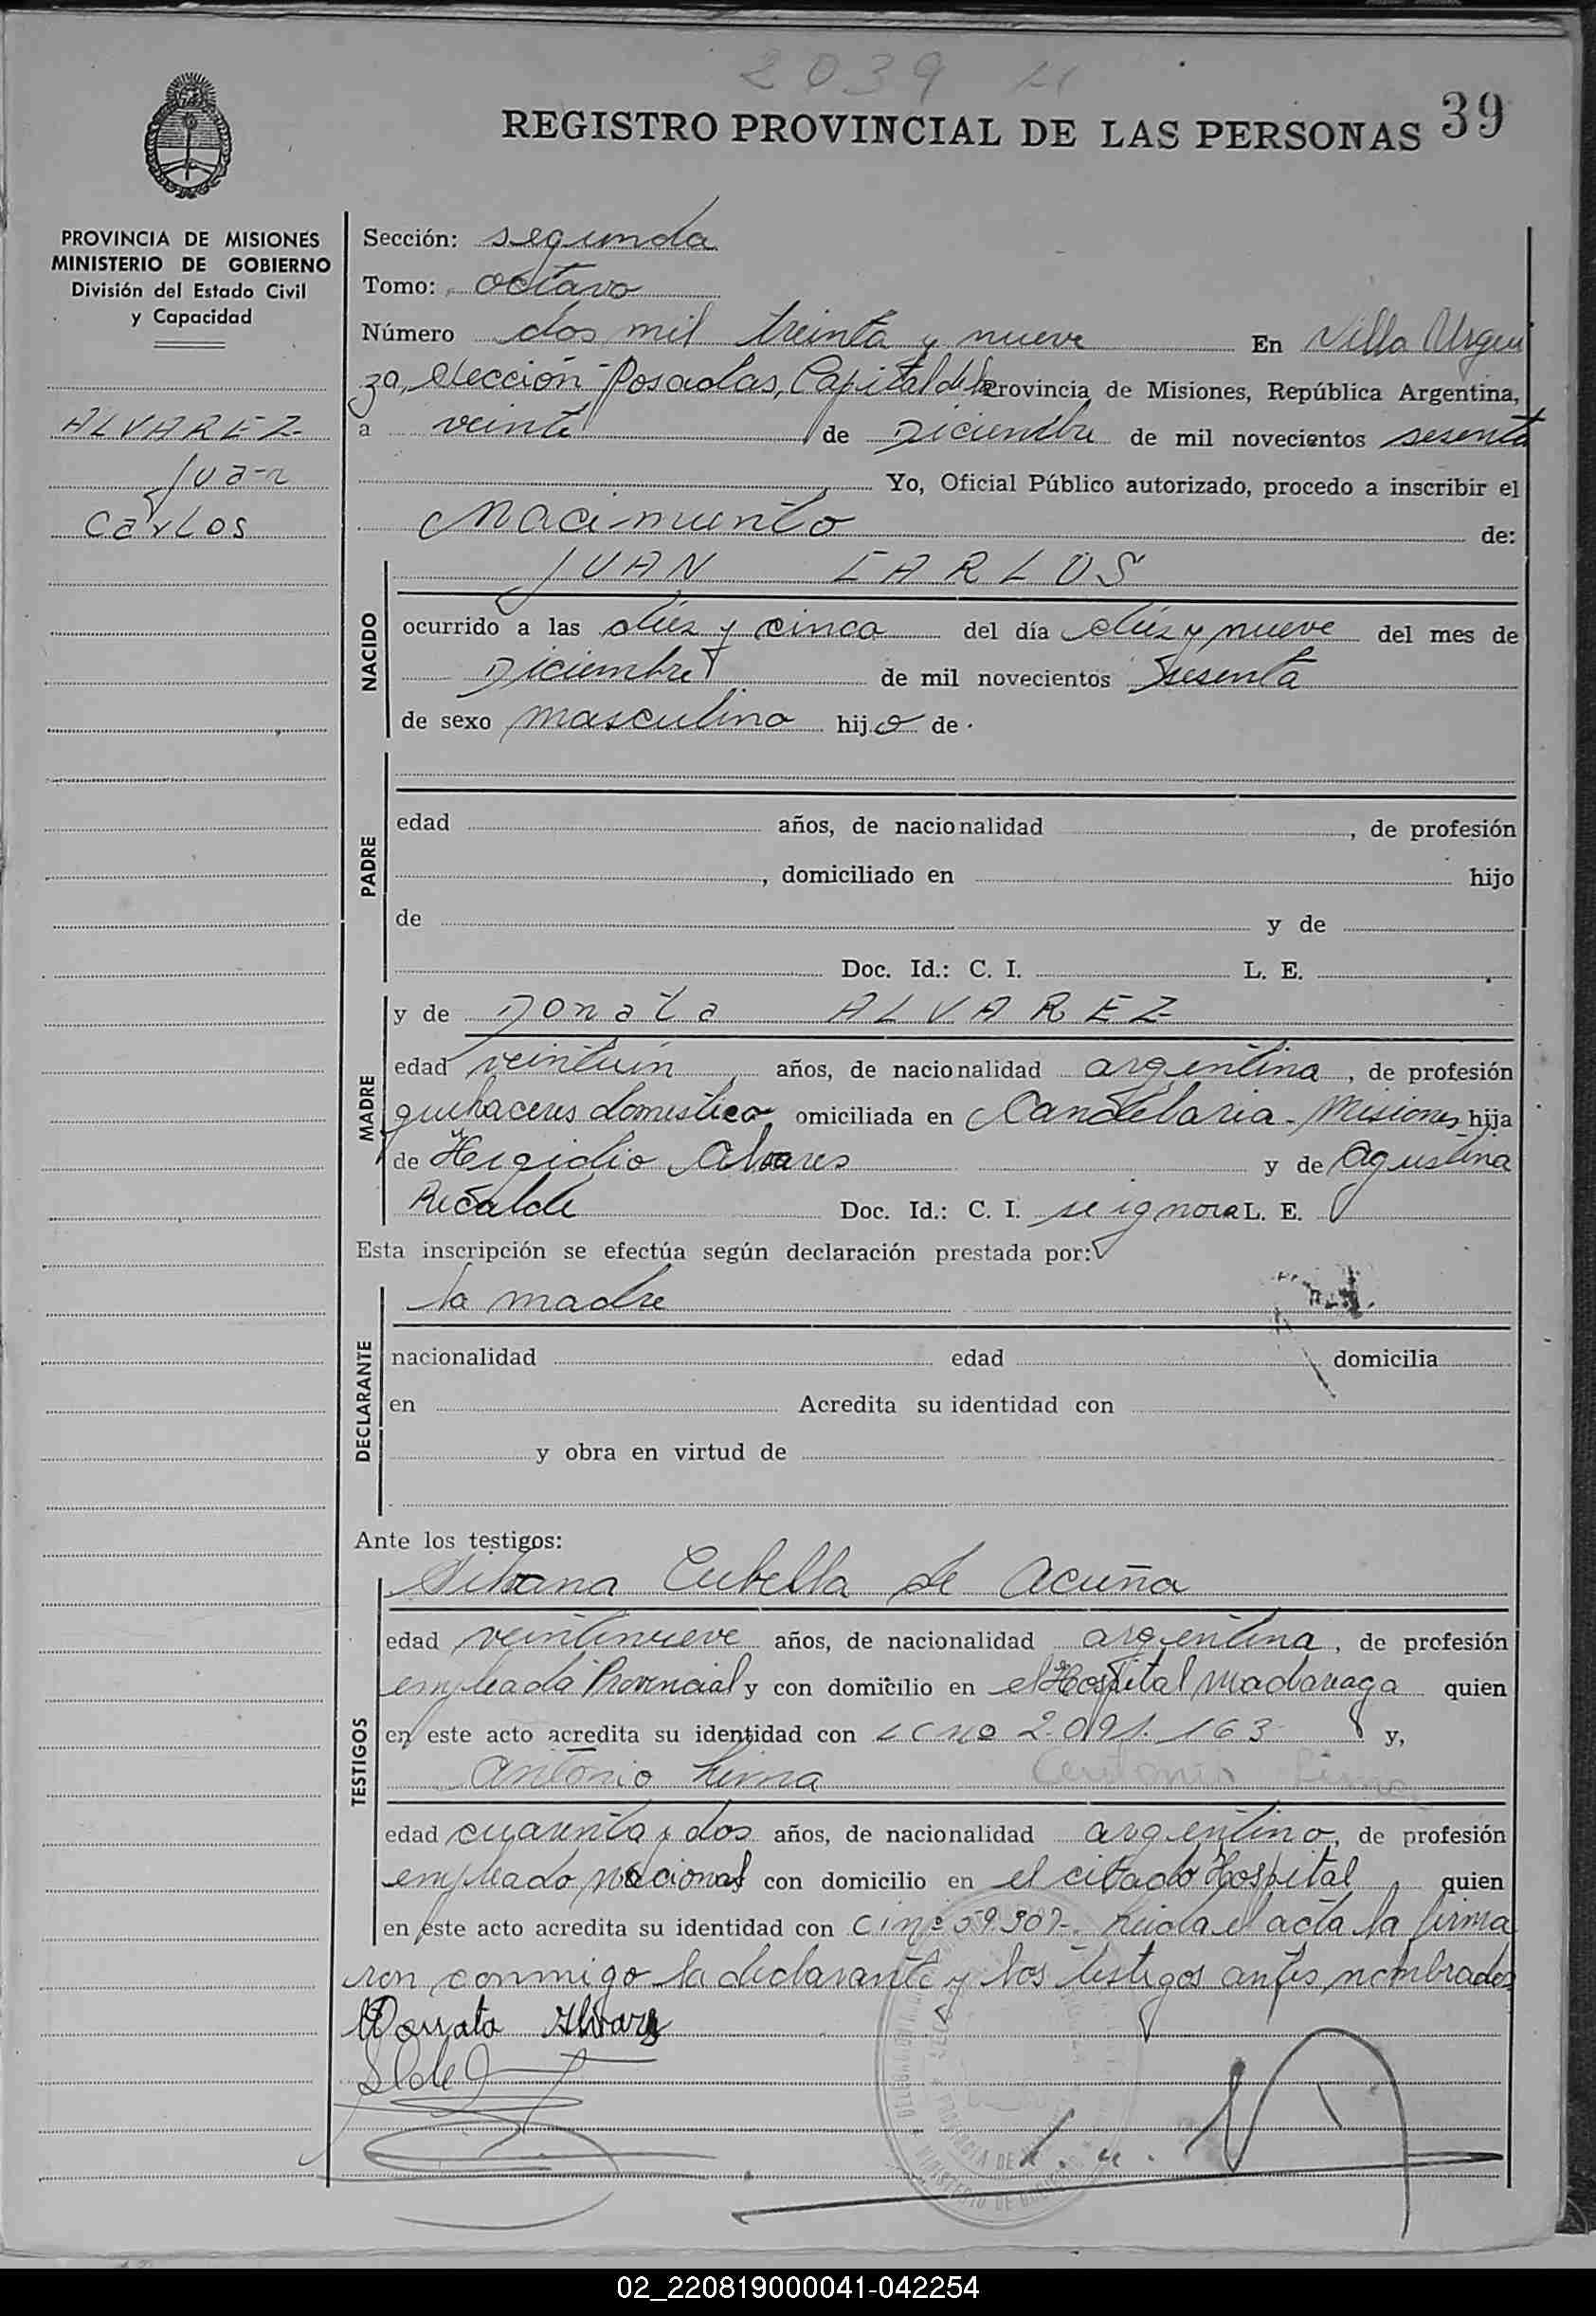 2039
REGISTRO PROVINCIAL DE LAS PERSONAS 39
PROVINCIA DE MISIONES
MINISTERIO DE GOBIERNO
División del Estado Civil
y Capacidad
ALVAREZ
Juan
Carlos
Sección: segunda
Tomo: octavo
Número dos mil treinta y nueve En Villa Urqui
za, sección Posadas, Capital de la Provincia de Misiones, República Argentina,
a veinte de Diciembre de mil novecientos sesenta
Yo, Oficial Público autorizado, procedo a inscribir el
Nacimiento de:
NACIDO
JUAN CARLOS
ocurrido a las diez y cinco del día diez y nueve del mes de
Diciembre de mil novecientos sesenta
de sexo masculino hijo de
PADRE
edad años, de nacionalidad , de profesión
, domiciliado en hijo
de y de
Doc. Id.: C. I. L. E.
MADRE
y de Donata ALVAREZ
edad veintiun años, de nacionalidad argentina, de profesión
quehaceres domestico omiciliada en Candelaria - Misiones hija
de Higidio Alvares y de Agustina
Recalde Doc. Id.: C. I. se ignora L. E.
Esta inscripción se efectúa según declaración prestada por:
DECLARANTE
la madre
nacionalidad edad domicilia
en Acredita su identidad con
y obra en virtud de
Ante los testigos:
TESTIGOS
Cubella de Acuña
edad veintinueve años, de nacionalidad argentina, de profesión
empleada Provincial y con domicilio en el Hospital Madariaga quien
en este acto acredita su identidad con LC no 2.091.163 y,
Antonio Lima
edad cuarenta y dos años, de nacionalidad argentino, de profesión
empleado nacional con domicilio en el citado Hospital quien
en este acto acredita su identidad con CI nº 59.307. Leida el acta la firma
ron conmigo la declarante y los testigos antes nombrados
Donata Alvarez
02_220819000041-042254